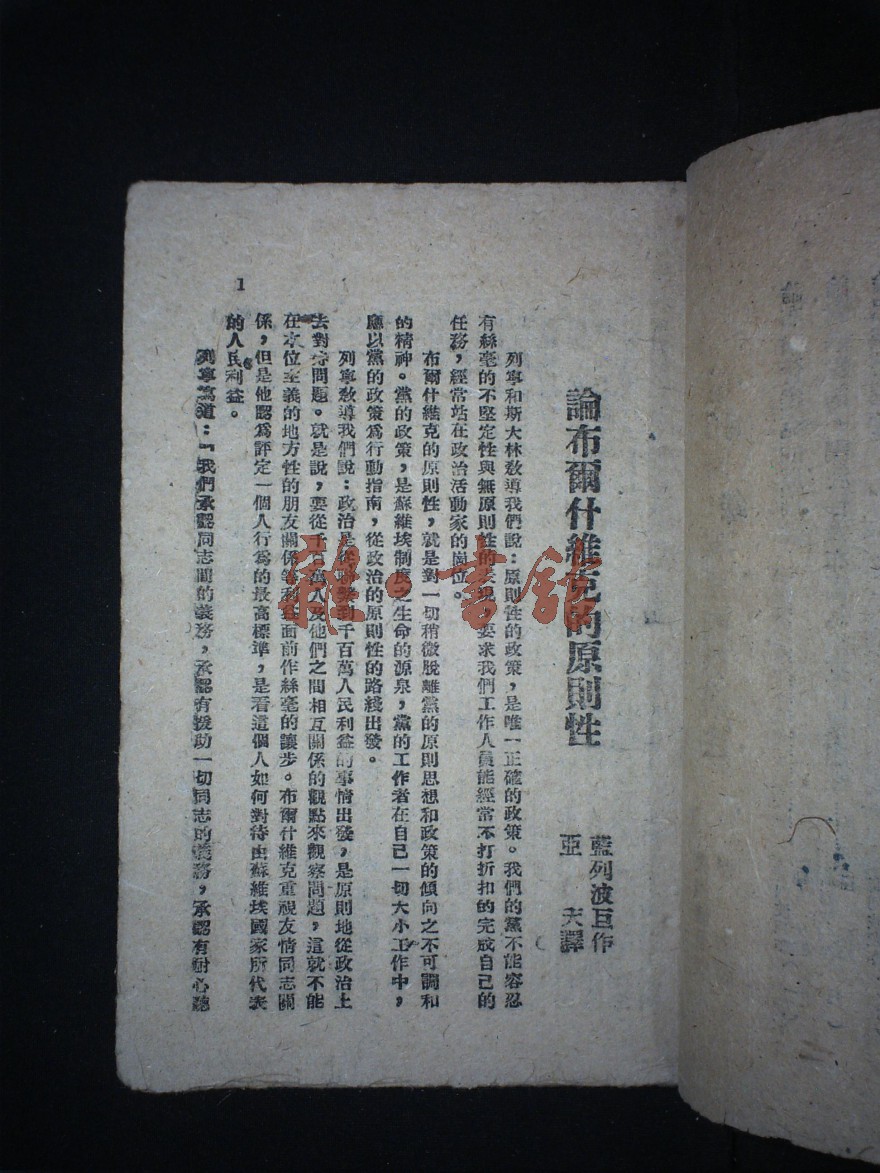 論布爾什維克的原則性
藍列波巨作
亞天譯
列寧和斯大林教導我們說：原則性的政策，是唯一正確的政策。我們的黨不能容忍
有絲毫的不堅定性與無原則性的表現，要求我們工作人員能經常不打折扣的完成自己的
任務，經常站在政治活動家的崗位。
布爾什維克的原則性，就是對一切稍微脫離黨的原則思想和政策的傾向之不可調和
的精神。黨的政策，是蘇維埃制度之生命的源泉，黨的工作者在自己一切大小工作中，
應以黨的政策爲行動指南，從政治的原則性的路綫出發。
列寧教導我們說：政治是從聯繫到千百萬人民利益的事情出發，是原則地從政治上
去對待問題。就是說，要從千百萬人及他們之間相互關係的觀點來觀察問題，這就不能
在本位主義的地方性的朋友關係等利益面前作絲毫的讓步。布爾什維克重視友情同志關
係，但是他認爲評定一個人行爲的最高標準，是看這個人如何對待由蘇維埃國家所代表
的人民利益。
列寧寫道：「我們承認同志間的義務，承認有援助一切同志的義務，承認有耐心聽
1
雜·書館